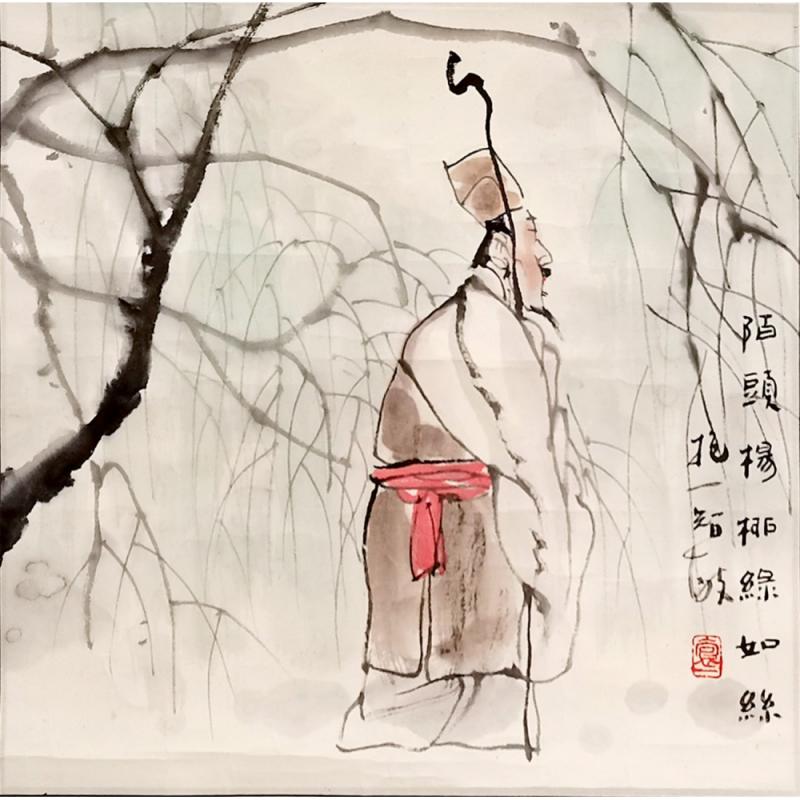 陌頭楊柳綠如絲
抱一智敏